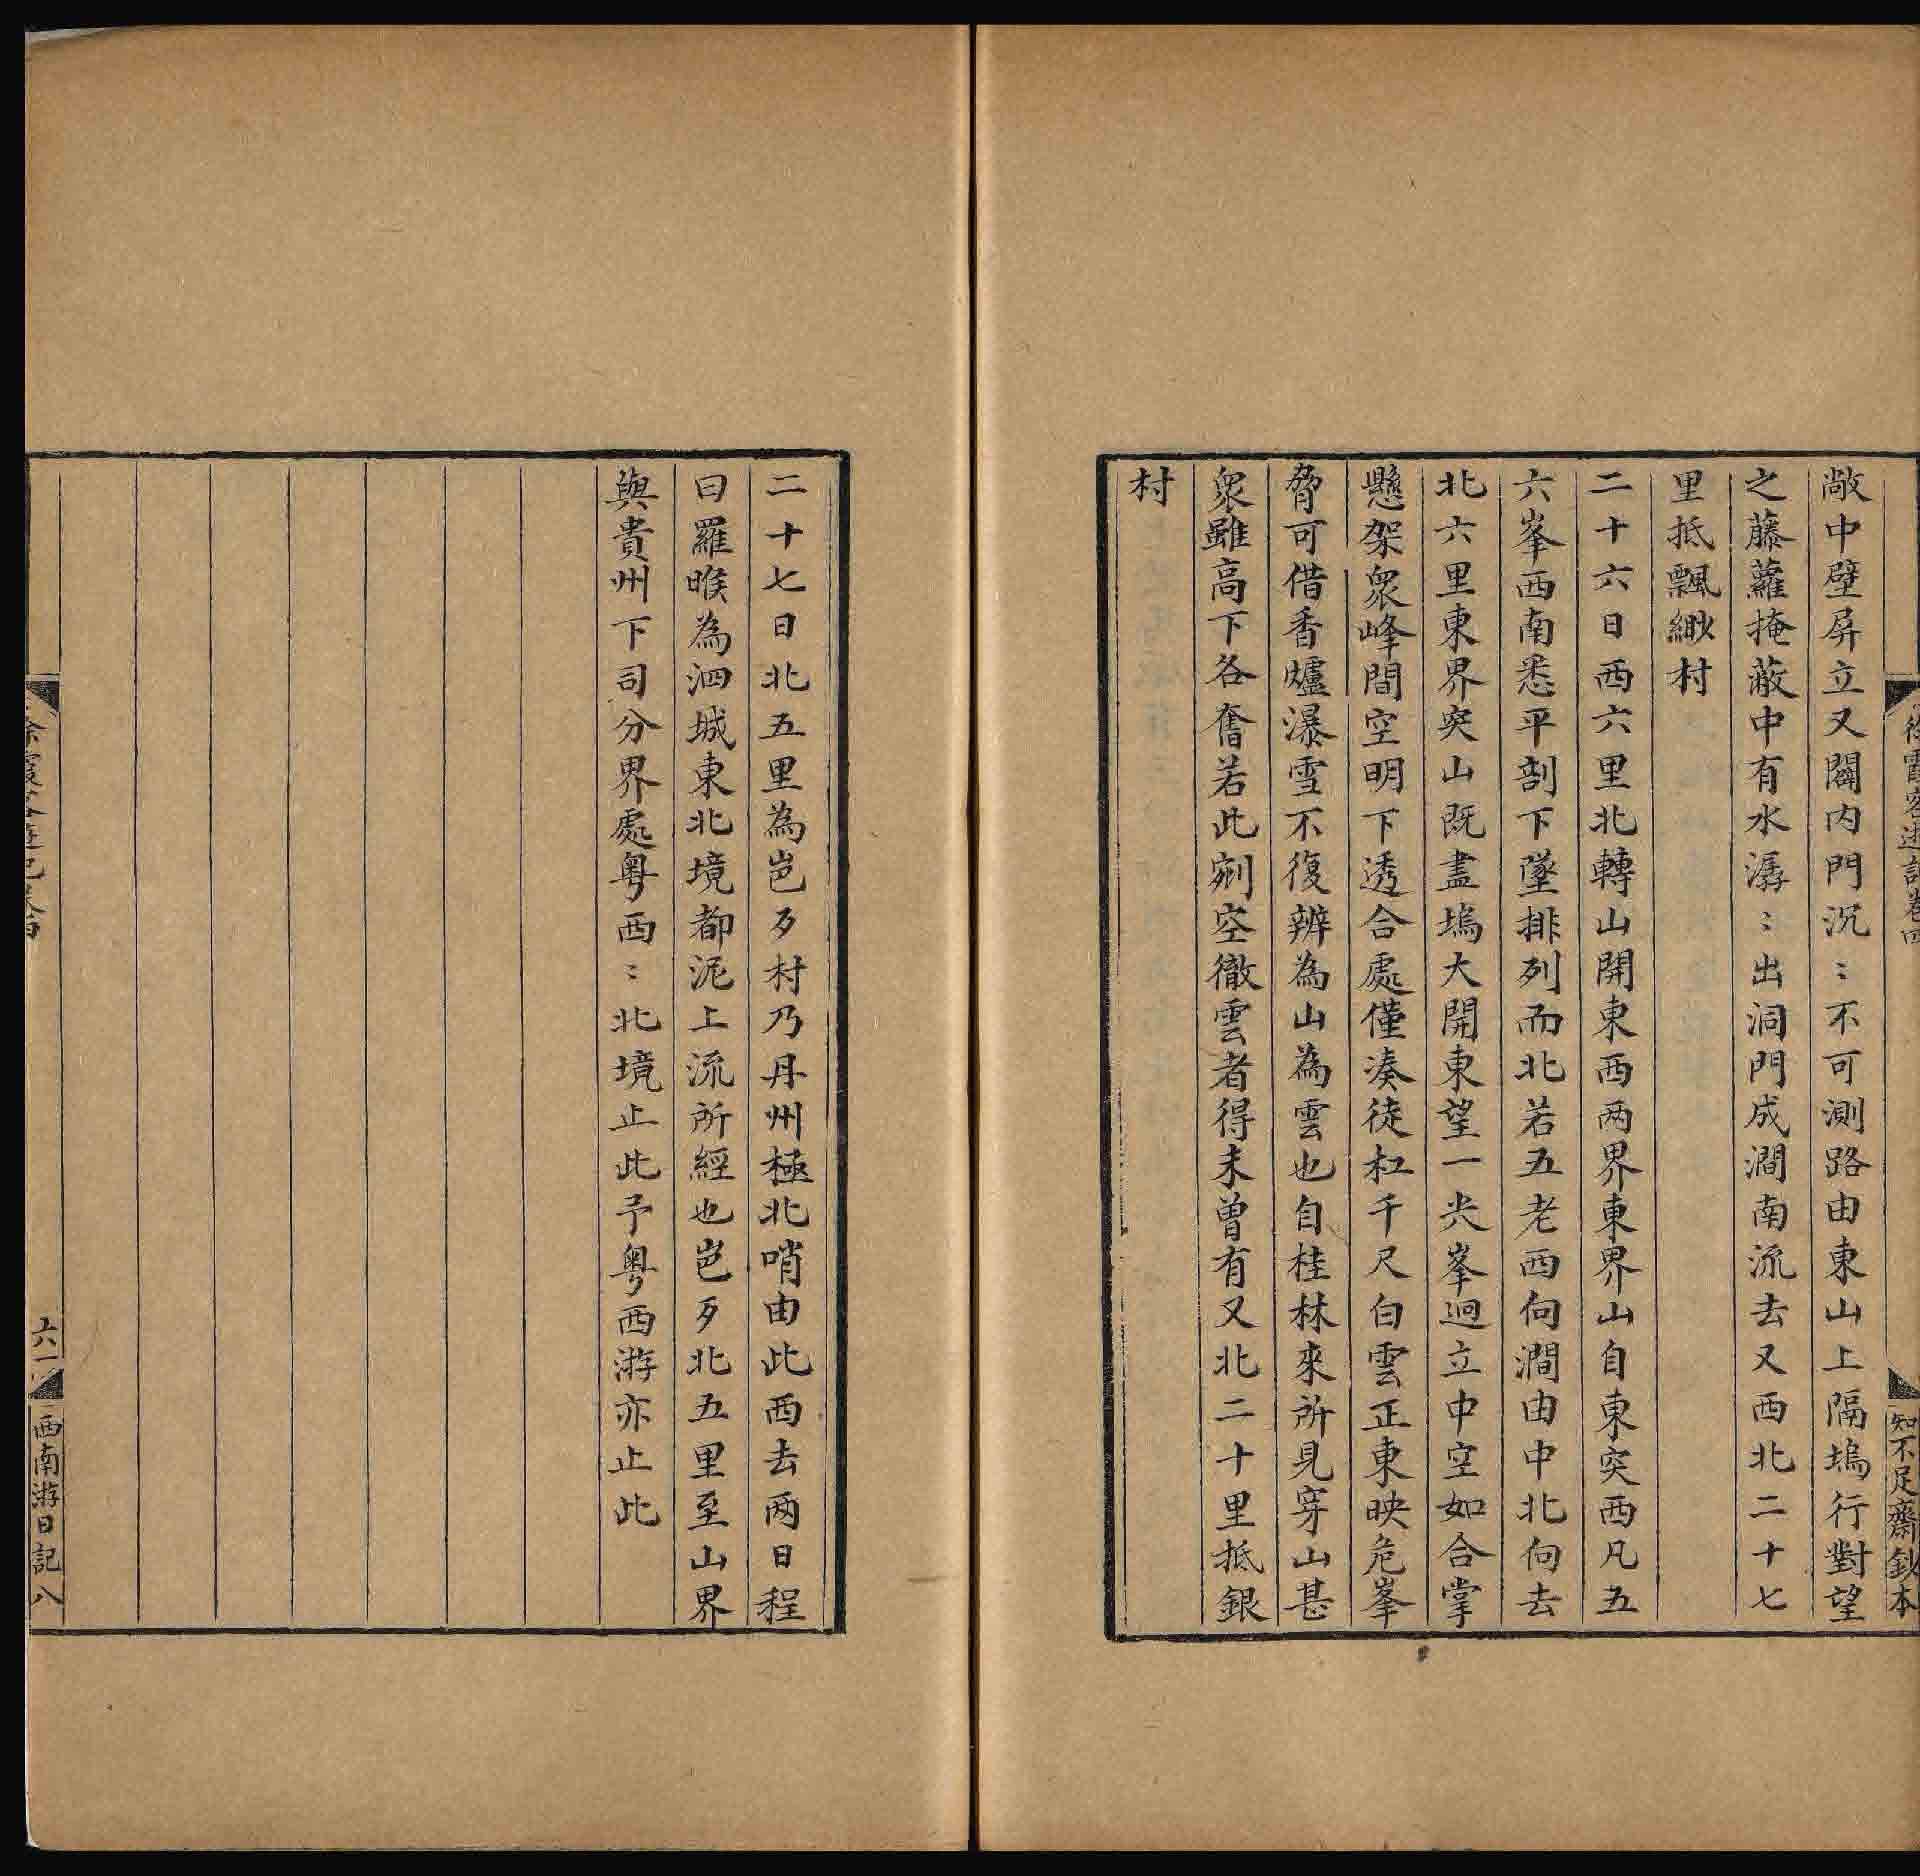 徐霞客遊記卷四
知不足齋鈔本
敞中壁屏立又闢内門沉〻不可測路由東山上隔塢行對望
之藤蘿掩蔽中有水潺〻出洞門成澗南流去又西北二十七
里抵飄緲村
二十六日西六里北轉山開東西兩界東界山自東突西凡五
六峯西南悉平剖下墜排列而北若五老西向澗由中北向去
北六里東界突山既盡塢大開東望一尖峯迥立中空如合掌
懸架衆峰間空明下透合處僅湊徒杠千尺白雲正東映危峯
脅可借香爐瀑雪不復辨為山為雲也自桂林來所見穿山甚
衆雖高下各奮若此剜空徹雲者得未曾有又北二十里抵銀
村
二十七日北五里為岜歹村乃丹州極北哨由此西去兩日程
曰羅㬋為泗城東北境都泥上流所經也岜歹北五里至山界
與貴州下司分界處粵西〻北境止此予粵西游亦止此
徐霞客遊記卷四
六一
西南游日記八